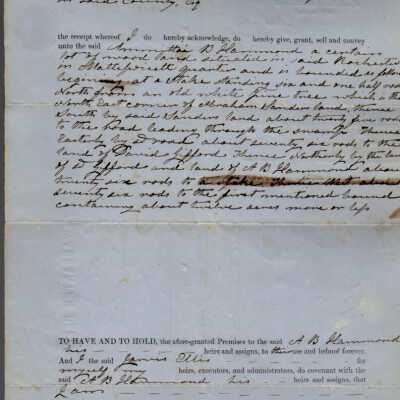 in said County, Esq
the receipt whereof I do hereby acknowledge, do hereby give, grant, sell and convey
unto the said B Hammond a certain
lot of wood land situated in said Rochester
in Mattapoisett quarter and is bounded as follows
begining at a Stake standing six and one half rods
North from an old white pine tree which is the
North East corner of Abraham Sanders land, thence
South by said Sanders land about twenty five rods
to the road leading through the swamp Thence
Easterly by road about seventy six rods to the
land of David Gifford Thence Northerly by the land
of D Gifford and land of A B Hammond about
twenty six rods to a stake Thence West about
seventy six rods to the first mentioned bound
containing about twelve acres more or less
TO HAVE AND TO HOLD, the afore-granted Premises to the said A B Hammond
his heirs and assigns, to their use and behoof forever.
And I the said James Ellis for
myself my heirs, executors, and administrators, do covenant with the
said A B Hammond his heirs and assigns, that
I am